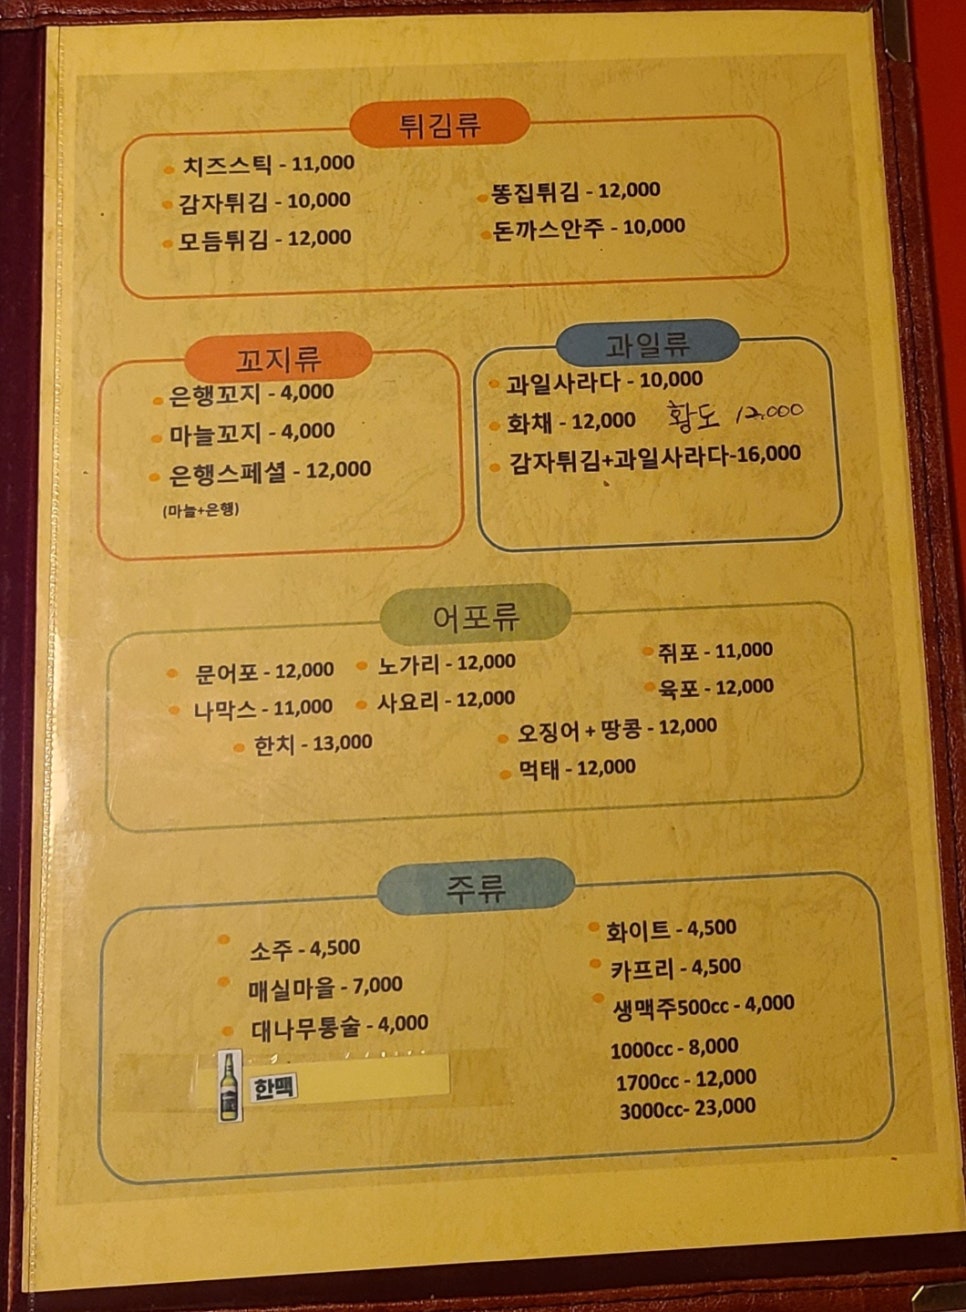 튀김류
치즈스틱 - 11,000
감자튀김 - 10,000
모듬튀김 - 12,000
똥집튀김 - 12,000
돈까스안주 - 10,000
꼬지류
은행꼬지 - 4,000
마늘꼬지 - 4,000
은행스페셜 - 12,000
(마늘+은행)
과일류
과일사라다 - 10,000
화채 - 12,000 황도 12.000
감자튀김+과일사라다-16,000
어포류
문어포 - 12,000 노가리 - 12,000 쥐포 - 11,000
나막스 - 11,000 사요리 - 12,000 육포 - 12,000
한치 - 13,000 오징어 + 땅콩 - 12,000
먹태 - 12,000
주류
소주 - 4,500
매실마을 - 7,000
대나무통술 - 4,000
한맥
화이트 - 4,500
카프리 - 4,500
생맥주500cc - 4,000
1000cc - 8,000
1700cc - 12,000
3000cc- 23,000